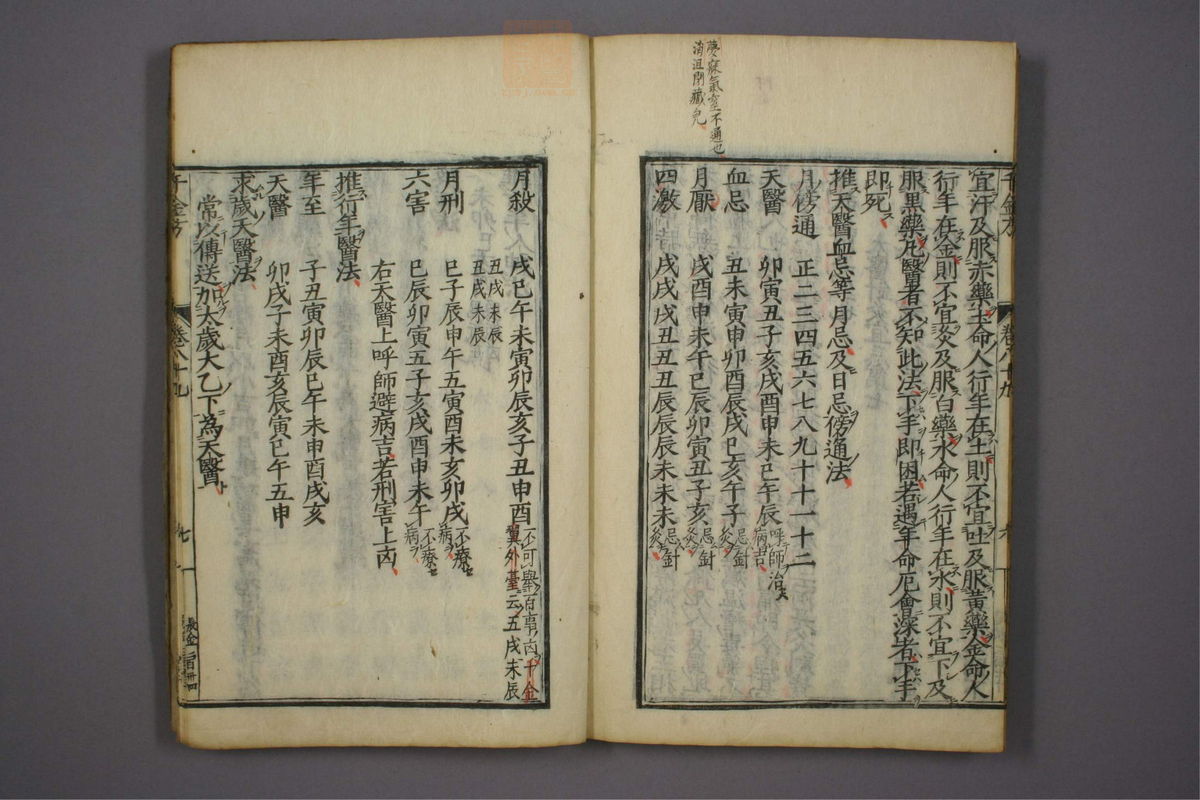 夢寐氣塞不通也
消沮閉藏皃
宜汗及服赤藥土命人行年在土則不宜吐及服黃藥金命人
行年在金則不宜灸及服白藥水命人行年在水則不宜下及
服黑藥凡醫者不知此法下手即困若遇年命厄會深者下手
即死
推天醫血忌等月忌及日忌傍通法
月傍通 正二三四五六七八九十十一十二
天醫 卯寅丑子亥戌酉申未巳午辰呼師治病吉
血忌 丑未寅申卯酉辰戌巳亥午子忌針灸
月厭 戌酉申未午巳辰卯寅丑子亥忌針灸
四激 戌戌戌丑丑丑辰辰辰未未未忌針灸
千金方 卷八十九 七
月殺 戌巳午未寅卯辰亥子丑申酉不可舉百事凶千金翼外臺云五戌未辰
丑戌未辰
丑戌未辰
月刑 巳子辰申午五寅酉未亥卯戌不療病
六害 巳辰卯寅五子亥戌酉申未午不療病
右天醫上呼師避病吉若刑害上凶
推行年醫法
年至 子丑寅卯辰巳午未申酉戌亥
天醫 卯戌子未酉亥辰寅巳午五申
求歲天醫法
常以傳送加太歲大乙下為天醫